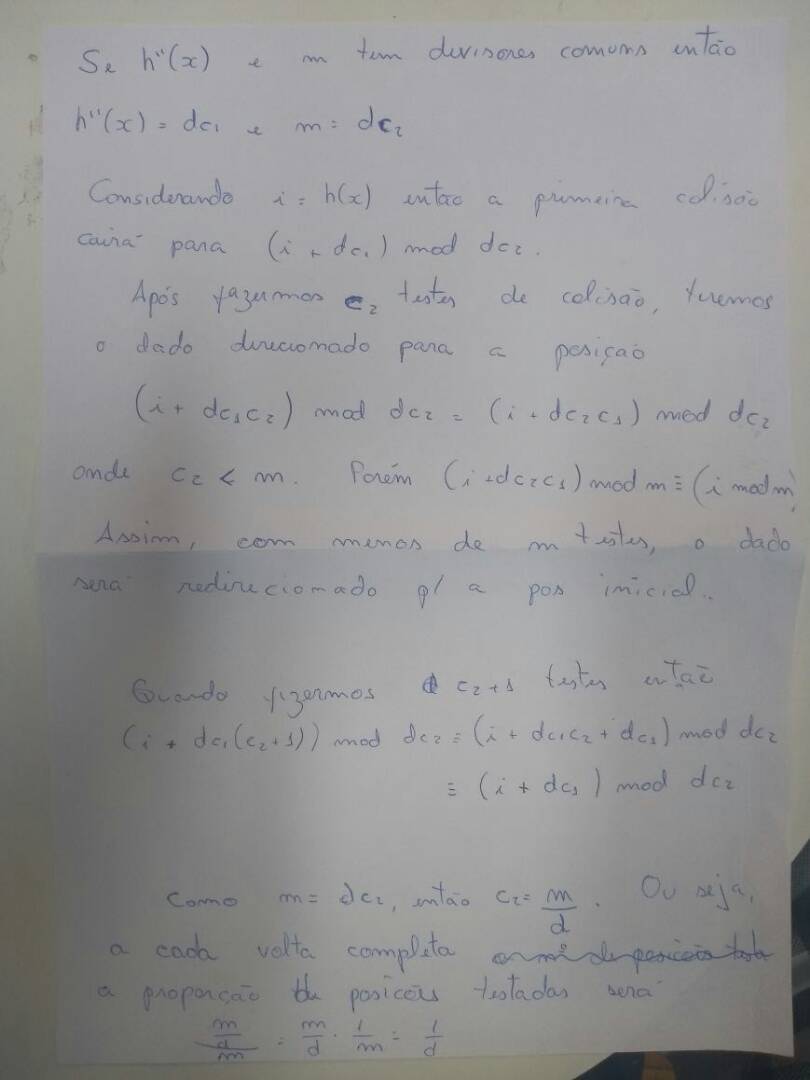 Se h''(x) e m tem divisores comuns então
h''(x) = dc₁ e m = dc₂
Considerando i = h(x) entao a primeira colisão
cairá para (i + dc₁) mod dc₂.
Após fazermos c₂ testes de colisão, teremos
o dado direcionado para a posição
(i + dc₁c₂) mod dc₂ = (i + dc₂c₁) mod dc₂
onde c₂ < m. Porém (i + dc₂c₁) mod m ≡ (i mod m)
Assim, com menos de m testes, o dado
será redirecionado p/ a pos inicial..
Quando fizermos c₂+1 testes então
(i + dc₁(c₂+1)) mod dc₂ ≡ (i + dc₁c₂ + dc₁) mod dc₂
≡ (i + dc₁) mod dc₂
Como m = dc₂, então c₂ = m/d. Ou seja,
a cada volta completa
a proporção de posições testadas será
(m/d)/m = m/d · 1/m = 1/d